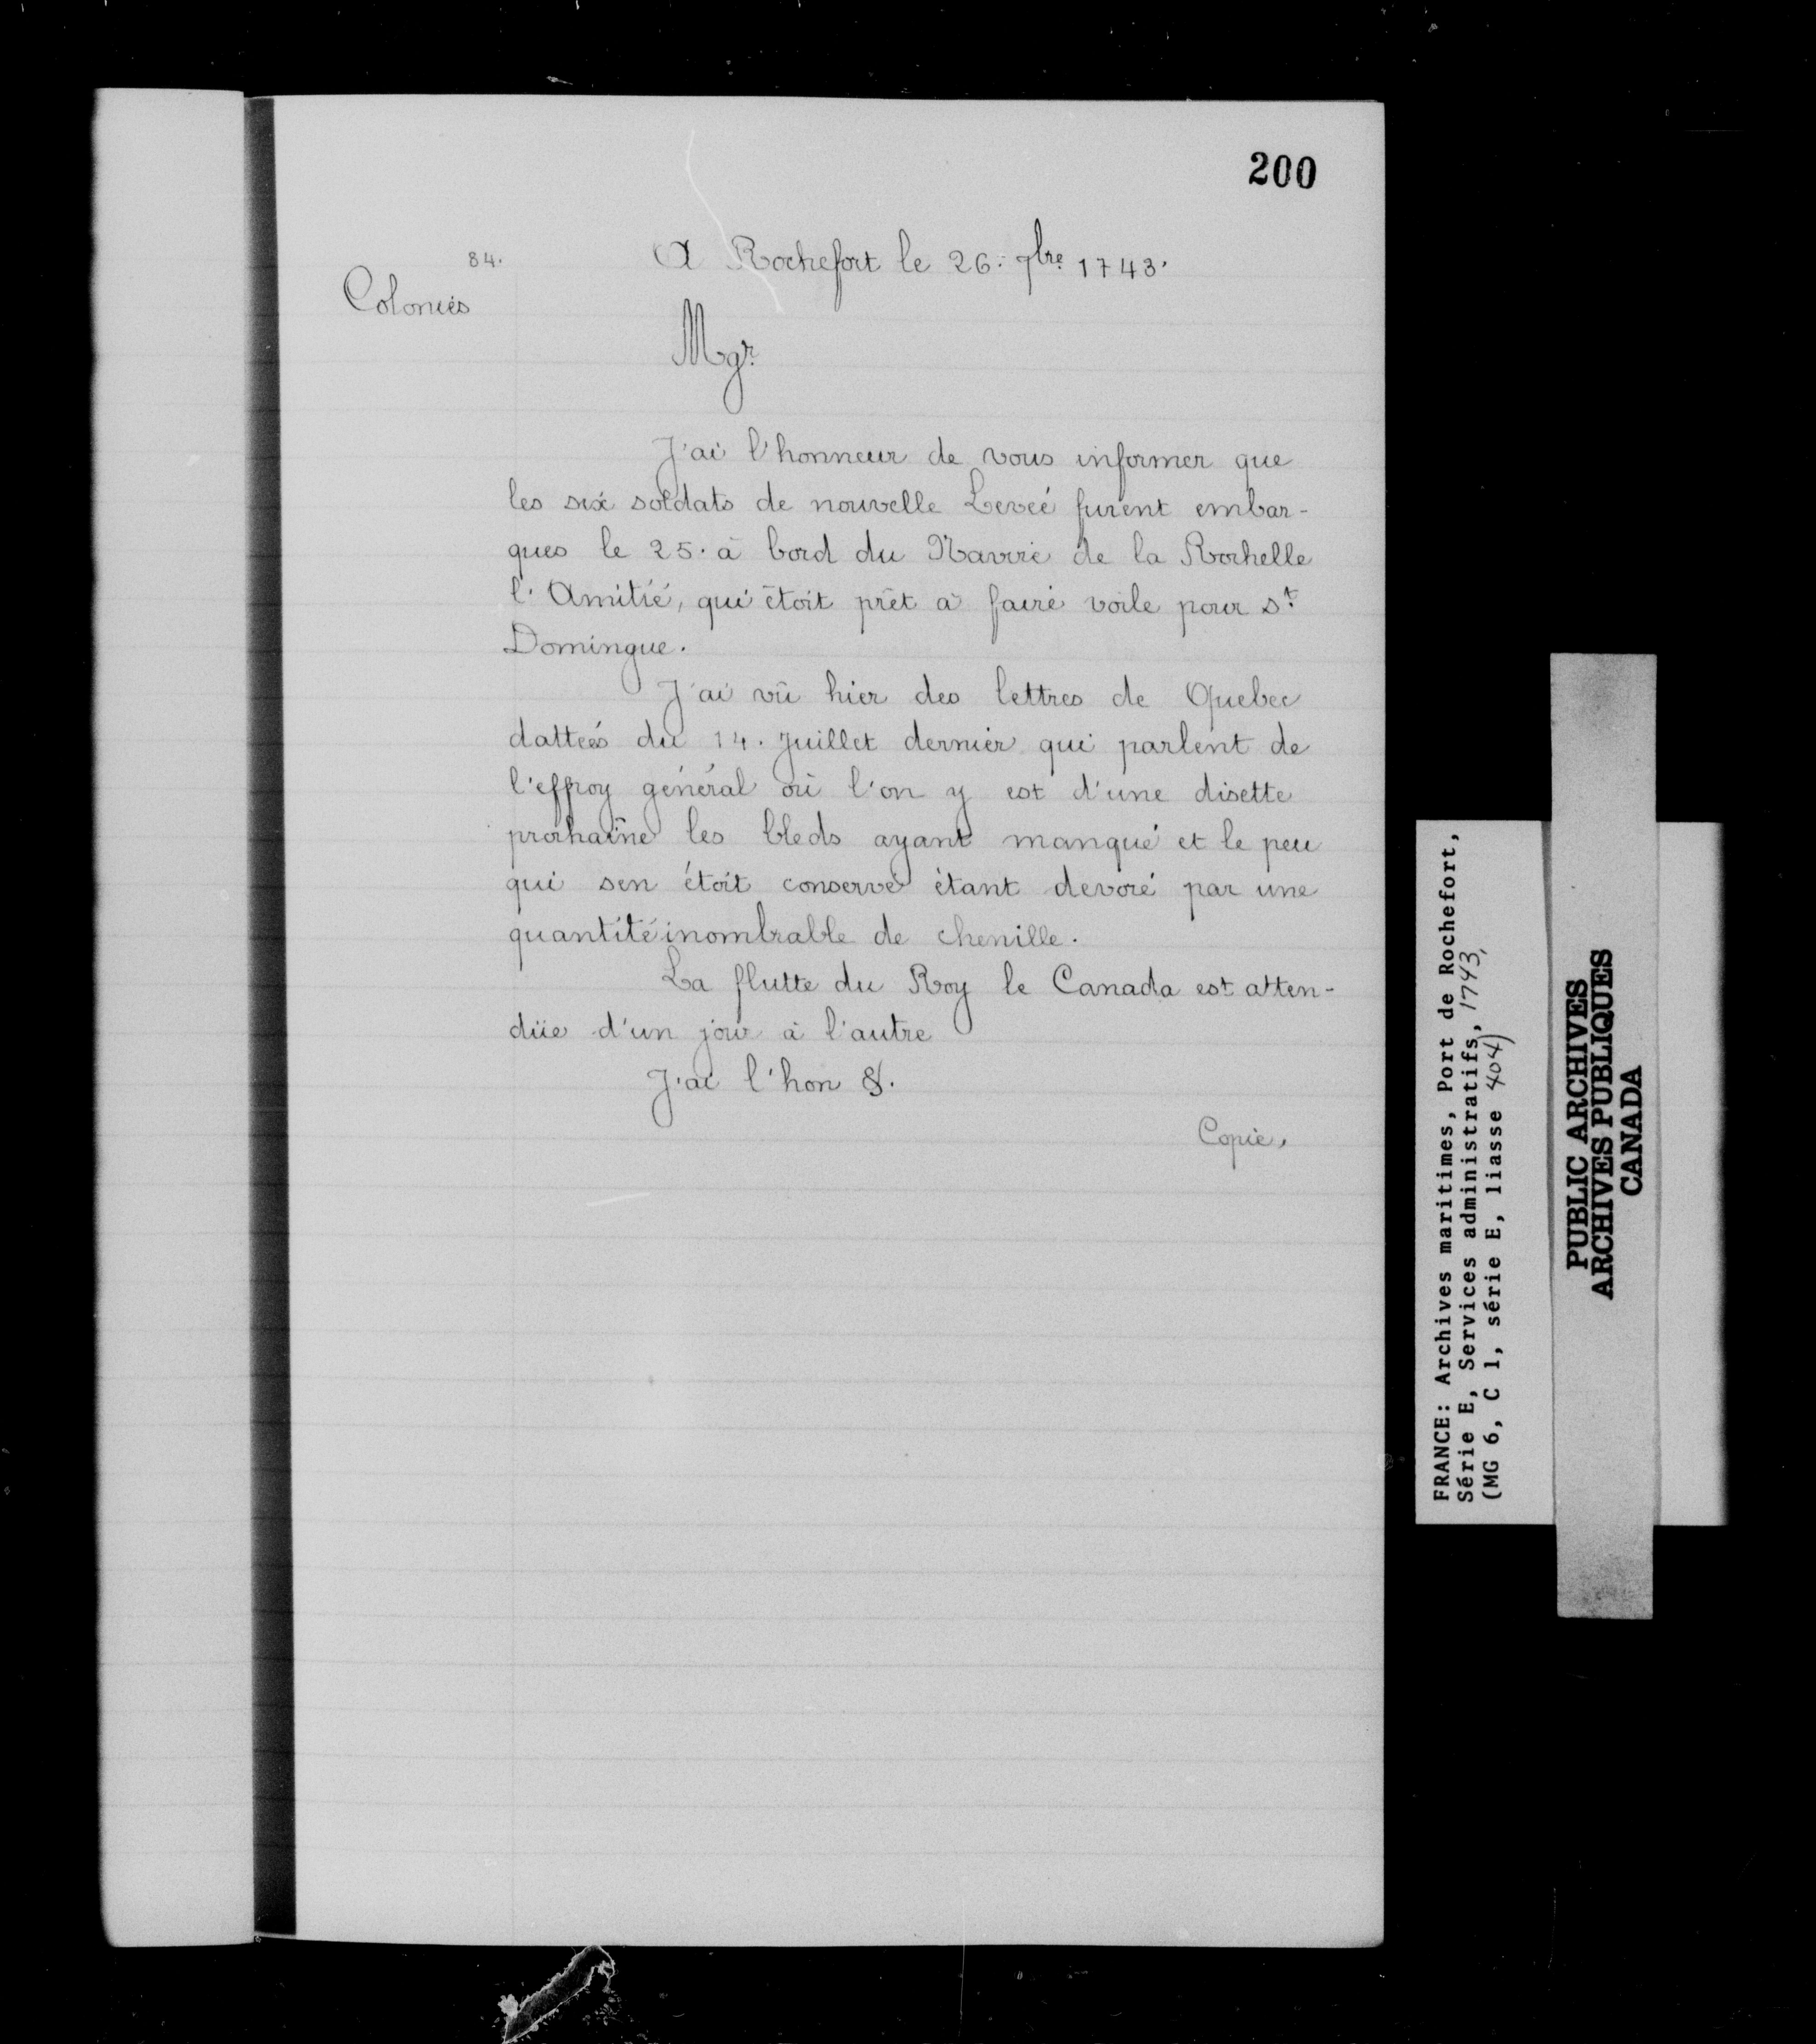 200
84.
A Rochefort le 26. 7bre 1743.
Colonies
Mgr
J'ai l'honneur de vous informer que
les six soldats de nouvelle Levée furent embar-
ques le 25. à bord du Navire de la Rochelle
l'Amitié, qui étoit prêt à faire voile pour St
Domingue.
J'ai vû hier des lettres de Quebec
dattées du 14. Juillet dernier qui parlent de
l'effroy général où l'on y est d'une disette
prochaine les bleds ayant manqué et le peu
qui sen étoit conservé étant devoré par une
quantité inombrable de chenille.
La flutte du Roy le Canada est atten-
düe d'un jour à l'autre
J'ai l'hon &.
Copie,
FRANCE: Archives maritimes, Port de Rochefort,
Série E, Services administratifs, 1743,
(MG 6, C 1, série E, liasse 404)
PUBLIC ARCHIVES
ARCHIVES PUBLIQUES
CANADA